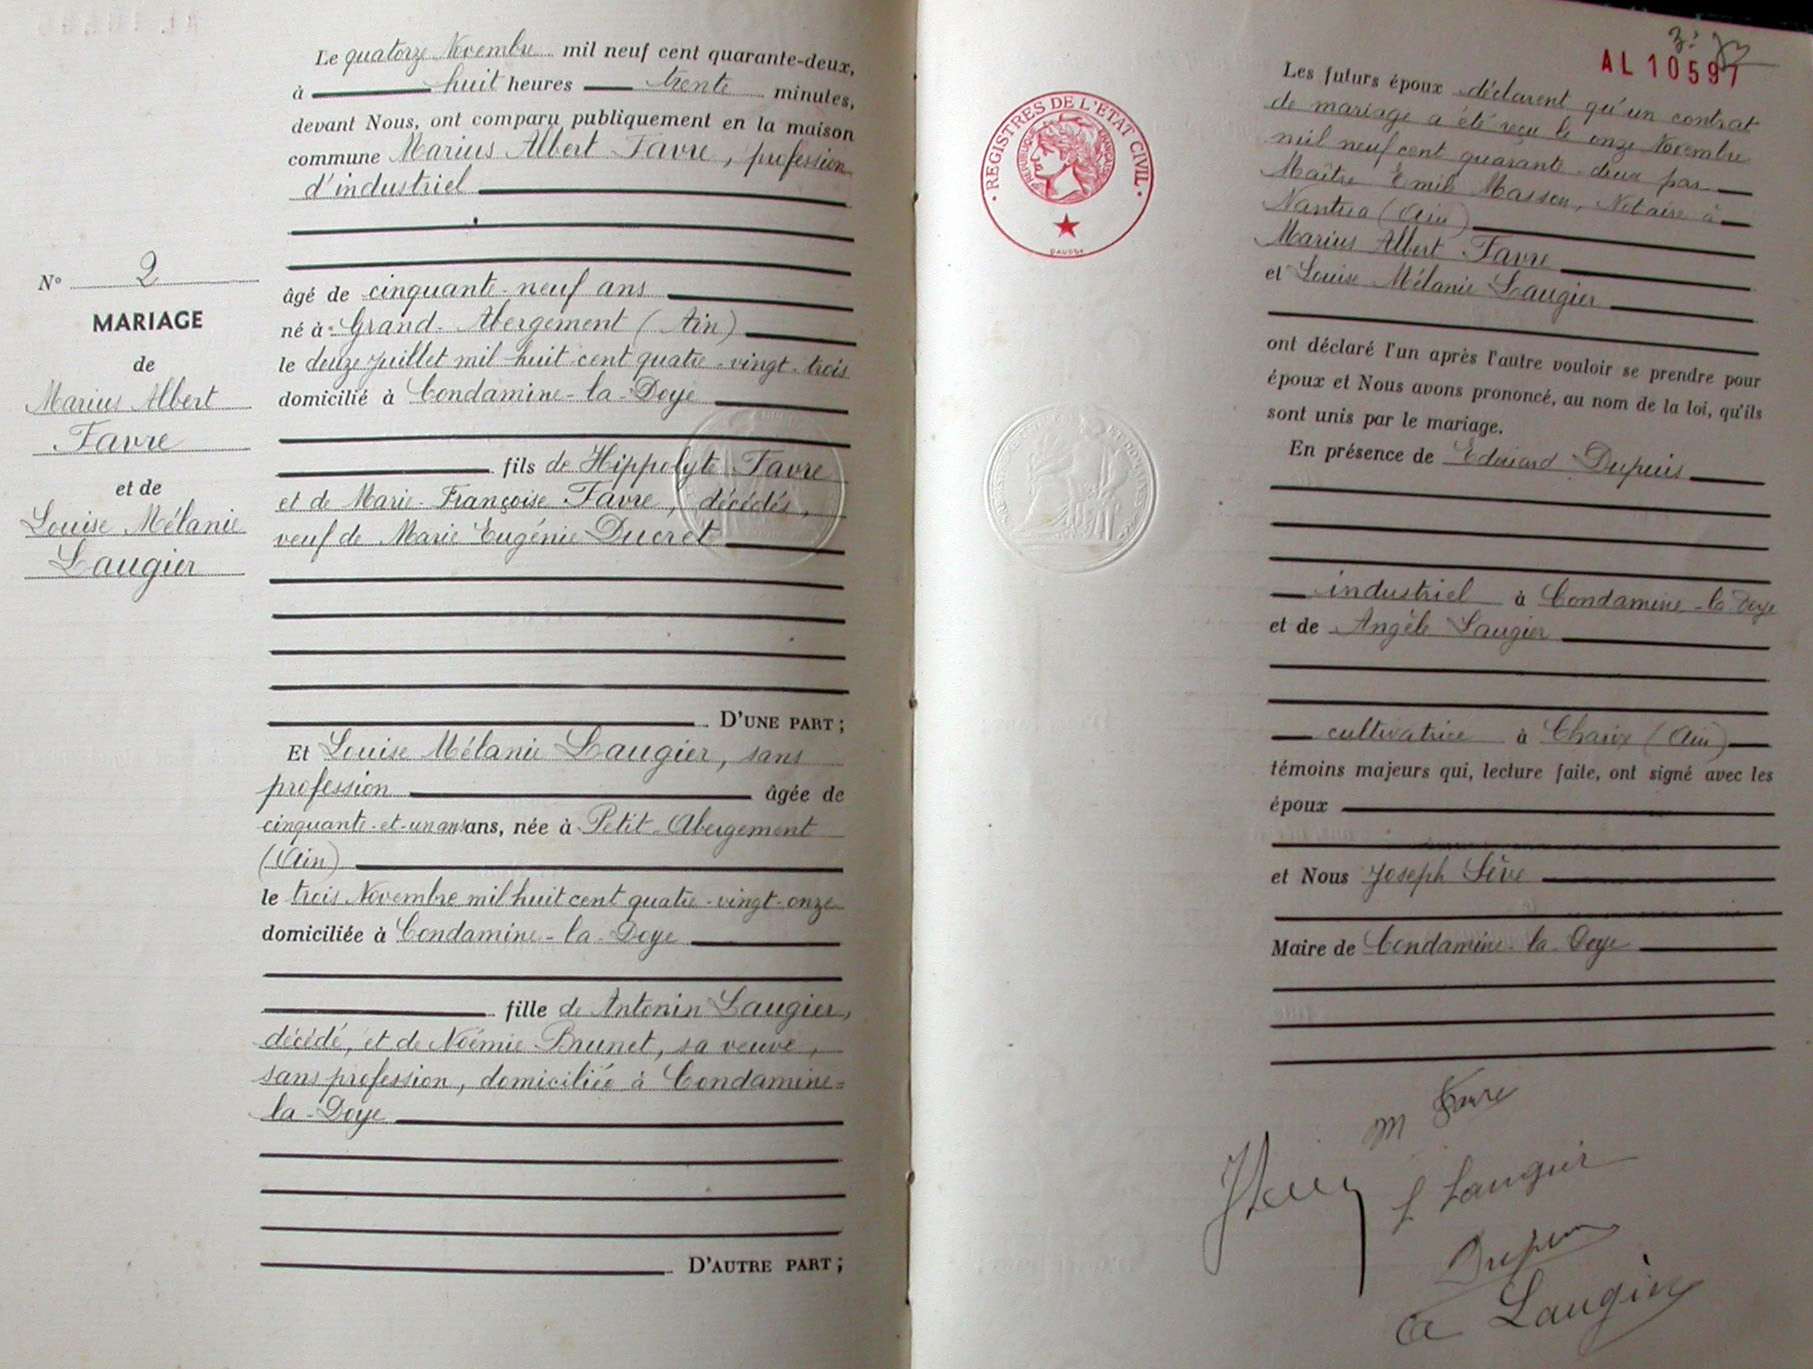 Le quatorze Novembre mil neuf cent quarante-deux,
à huit heures trente minutes,
devant Nous, ont comparu publiquement en la maison
commune Marius Albert Favre, profession
d'industriel
âgé de cinquante-neuf ans
né à Grand-Abergement (Ain)
le juillet mil huit cent quatre-vingt-trois
domicilié à Condamine-la-Doye
fils de Hippolyte Favre
et de Marie-Françoise Favre, décédés,
veuf de Marie Eugénie Ducret
D'UNE PART ;
Et Louise Mélanie Laugier, sans
profession âgée de
cinquante-et-un ans ans, née à Petit-Abergement
(Ain)
le trois Novembre mil huit cent quatre-vingt-onze
domiciliée à Condamine-la-Doye
fille de Antonin Laugier,
décédé, et de Noémie Brunet, sa veuve,
sans profession, domiciliée à Condamine-
la-Doye
D'AUTRE PART ;
N° 2
MARIAGE
de
Marius Albert
Favre
et de
Louise Mélanie
Laugier
AL 10597
REGISTRES DE L'ETAT CIVIL
Les futurs époux déclarent qu'un contrat
de mariage a été reçu le onze Novembre
mil neuf cent quarante-deux par
Maître Emile Masson, Notaire à
Nantua (Ain)
Marius Albert Favre
et Louise Mélanie Laugier
ont déclaré l'un après l'autre vouloir se prendre pour
époux et Nous avons prononcé, au nom de la loi, qu'ils
sont unis par le mariage.
En présence de Edouard Dupuis
industriel à Condamine-la Doye
et de Angèle Laugier
cultivatrice à Charix (Ain)
témoins majeurs qui, lecture faite, ont signé avec les
époux
et Nous Joseph Sève
Maire de Condamine-la-Doye
M Favre
L Laugier
Dupuis
a Laugier